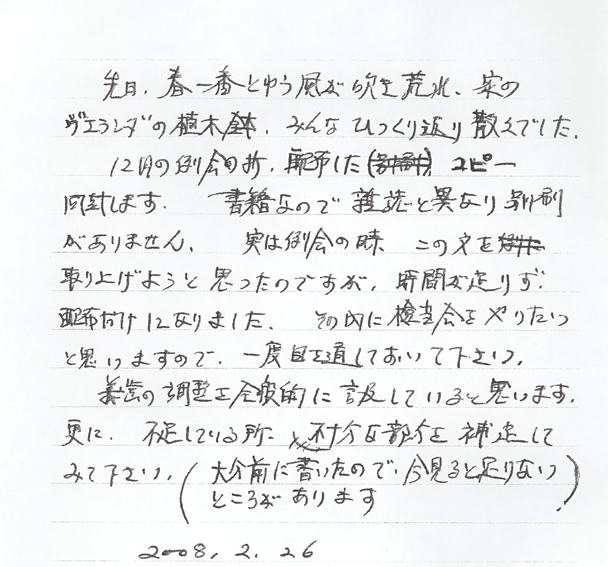 先日、春一番とゆう風が吹き荒れ、家の
ヴェランダの植木鉢、みんなひっくり返り散々でした。
12月の例会の折、配布した コピー
同封します。 書籍なので雑誌と異なり別刷
がありません。 実は例会の時 この文を
取り上げようと思ったのですが、時間が足りず、
配布だけになりました。 その内に検当会をやりたい
と思いますので、一度目を通しておいて下さい。
義歯の調整を全般的に言及していると思います。
更に、不足している所に 不十分な部分を補足して
みて下さい。(大分前に書いたので、今見ると足りない
ところがあります)
2008, 2, 26